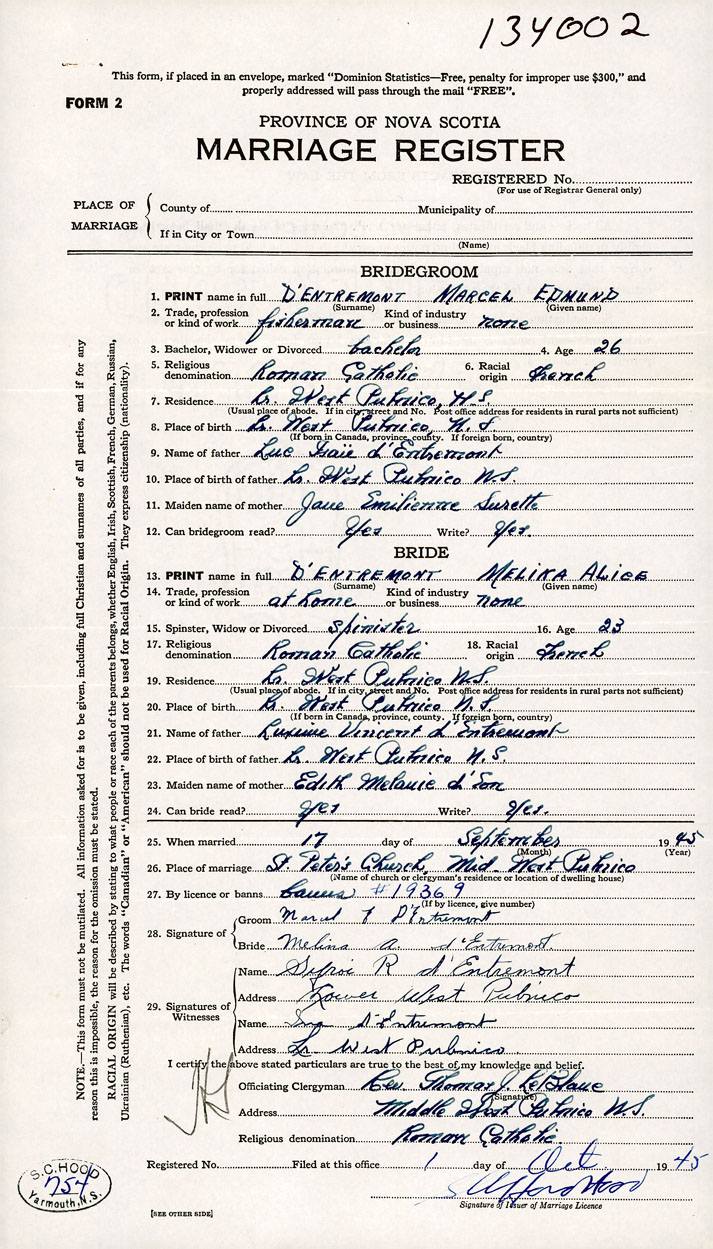 134002
This form, if placed in an envelope, marked "Dominion Statistics—Free, penalty for improper use $300," and
properly addressed will pass through the mail "FREE".
FORM 2
PROVINCE OF NOVA SCOTIA
MARRIAGE REGISTER
REGISTERED No.
(For use of Registrar General only)
PLACE OF MARRIAGE
County of Municipality of
If in City or Town
(Name)
BRIDEGROOM
1. PRINT name in full D'ENTREMONT MARCEL EDMUND
(Surname) (Given name)
2. Trade, profession or kind of work fisherman Kind of industry or business none
3. Bachelor, Widower or Divorced bachelor 4. Age 26
5. Religious denomination Roman Catholic 6. Racial origin French
7. Residence Lr. West Pubnico, N.S.
(Usual place of abode. If in city, street and No. Post office address for residents in rural parts not sufficient)
8. Place of birth Lr. West Pubnico, N.S.
(If born in Canada, province, county. If foreign born, country)
9. Name of father Luc Isaïe d'Entremont
10. Place of birth of father Lr. West Pubnico N.S.
11. Maiden name of mother Jane Emilienne Surette
12. Can bridegroom read? Yes Write? Yes.
BRIDE
13. PRINT name in full D'ENTREMONT MELINA ALICE
(Surname) (Given name)
14. Trade, profession or kind of work at home Kind of industry or business none
15. Spinster, Widow or Divorced spinister 16. Age 23
17. Religious denomination Roman Catholic 18. Racial origin French
19. Residence Lr. West Pubnico N.S.
(Usual place of abode. If in city, street and No. Post office address for residents in rural parts not sufficient)
20. Place of birth Lr. West Pubnico N.S.
(If born in Canada, province, county. If foreign born, country)
21. Name of father Vincent d'Entremont
22. Place of birth of father Lr. West Pubnico N.S.
23. Maiden name of mother Edith Melanie d'Eon
24. Can bride read? Yes Write? Yes.
25. When married 17 day of September 1945
(Month) (Year)
26. Place of marriage St. Peter's Church, Mid. West Pubnico
(Name of church or clergyman's residence or location of dwelling house)
27. By licence or banns banns #19369
(If by licence, give number)
28. Signature of
Groom Marcel E D'Entremont
Bride Melina A. d'Entremont.
29. Signatures of Witnesses
Name R d'Entremont
Address Lower West Pubnico
Name D'Entremont
Address Lr. West Pubnico
I certify the above stated particulars are true to the best of my knowledge and belief.
Officiating Clergyman Rev. Thomas J. LeBlanc
(Signature)
Address Middle West Pubnico N.S.
Religious denomination Roman Catholic.
Registered No. Filed at this office 1 day of Oct 1945
Signature of Issuer of Marriage Licence
[SEE OTHER SIDE]
S.C. HOOD
754
Yarmouth, N.S.
NOTE.—This form must not be mutilated. All information asked for is to be given, including full Christian and surnames of all parties, and if for any
reason this is impossible, the reason for the omission must be stated.
RACIAL ORIGIN will be described by stating to what people or race each of the parents belongs, whether English, Irish, Scottish, French, German, Russian,
Ukrainian (Ruthenian), etc. The words "Canadian" or "American" should not be used for Racial Origin. They express citizenship (nationality).